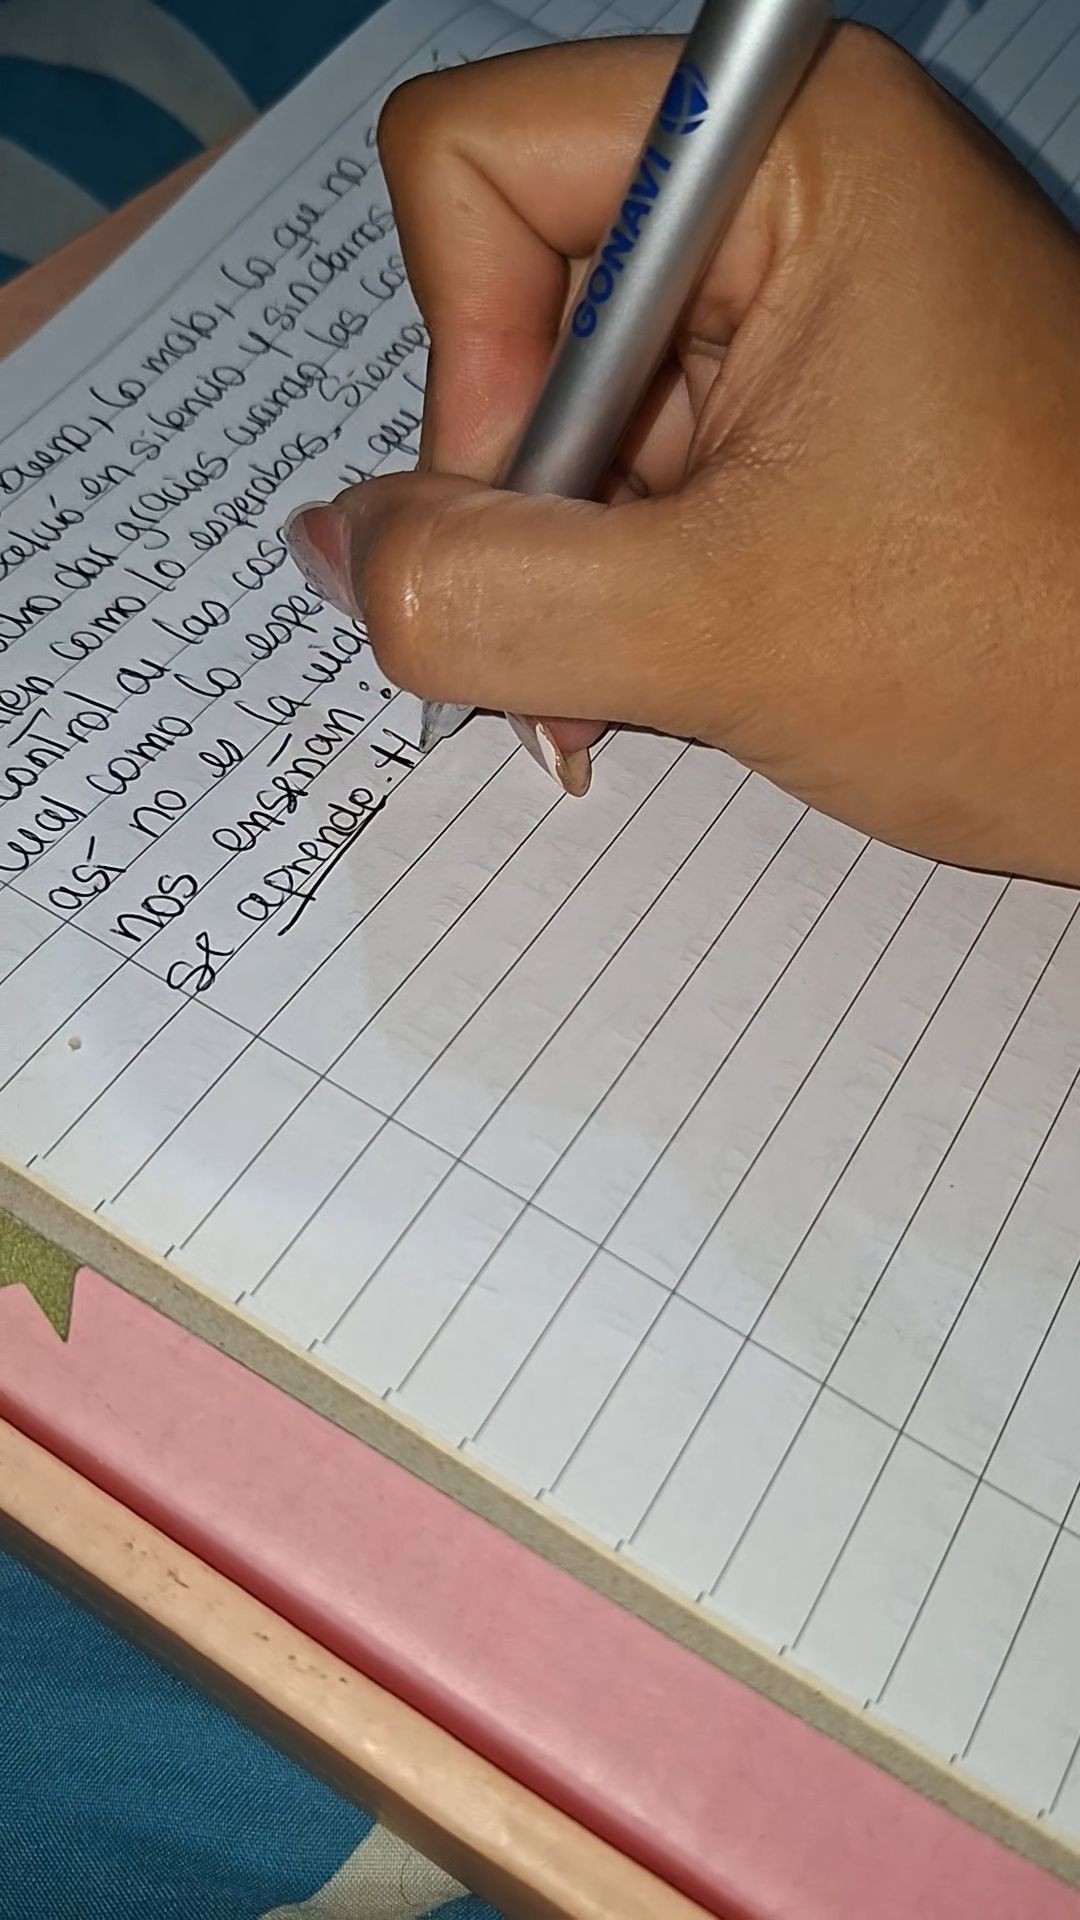 lo malo, lo que no
en silencio y sin darnos
dar gracias cuando las cos
como lo esperabas. Siemp
control de las cosa y que
cual como lo esper
así no es la vida
nos enseñan:
se aprende. H
GONAVI